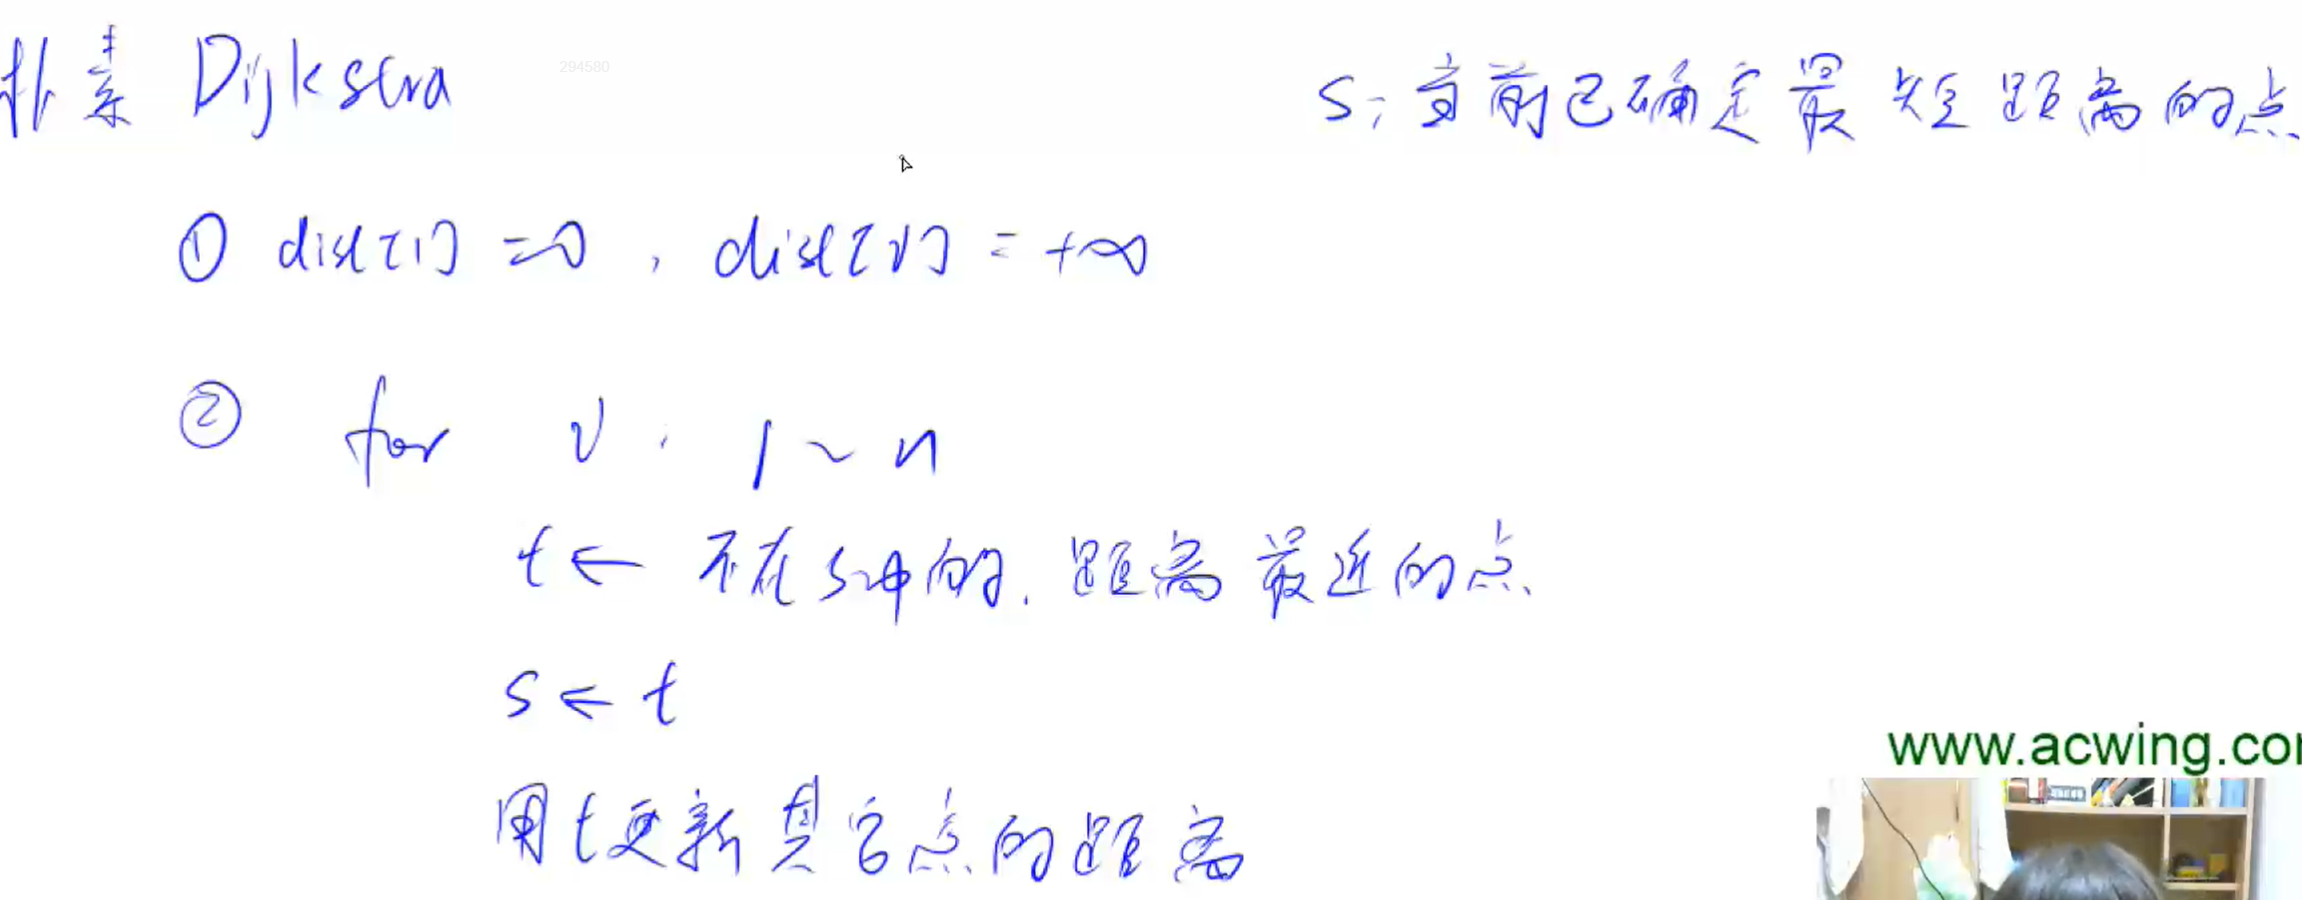 朴素 Dijkstra
294580
s: 当前已确定最短距离的点
① dist[1] = 0, dist[i] = +∞
② for i: 1 ~ n
t ← 不在s中的, 距离最近的点
s ← t
用t更新其它点的距离
www.acwing.co